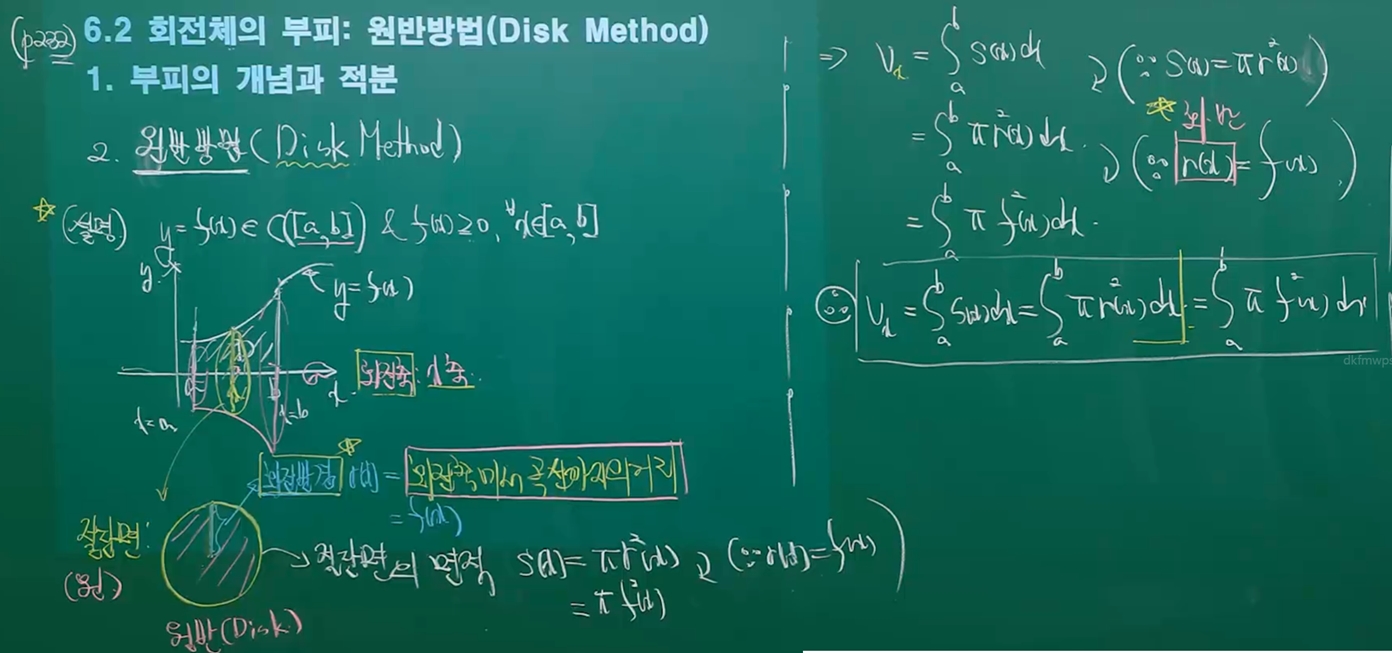 (p232) 6.2 회전체의 부피: 원반방법(Disk Method)
1. 부피의 개념과 적분
2. 원반방법(Disk Method)
☆ (설명) y=f(x)∈C([a,b]) & f(x)≥0, ∀x∈[a,b]
y
y=f(x)
a x b x
x=a x=b
회전축: x축
회전반경 r(x) = 회전축에서 곡선까지의 거리
= f(x)
절단면:
(원)
원반(Disk)
→ 절단면의 면적 S(x)=πr²(x) (∵ r(x)=f(x))
= πf²(x)
⇒ Vx = ∫ₐᵇ S(x)dx (∵ S(x)=πr²(x))
= ∫ₐᵇ πr²(x)dx. (∵ r(x)=f(x))
= ∫ₐᵇ π f²(x)dx.
∴ Vx = ∫ₐᵇ S(x)dx = ∫ₐᵇ πr²(x)dx = ∫ₐᵇ π f²(x)dx
dkfmwps